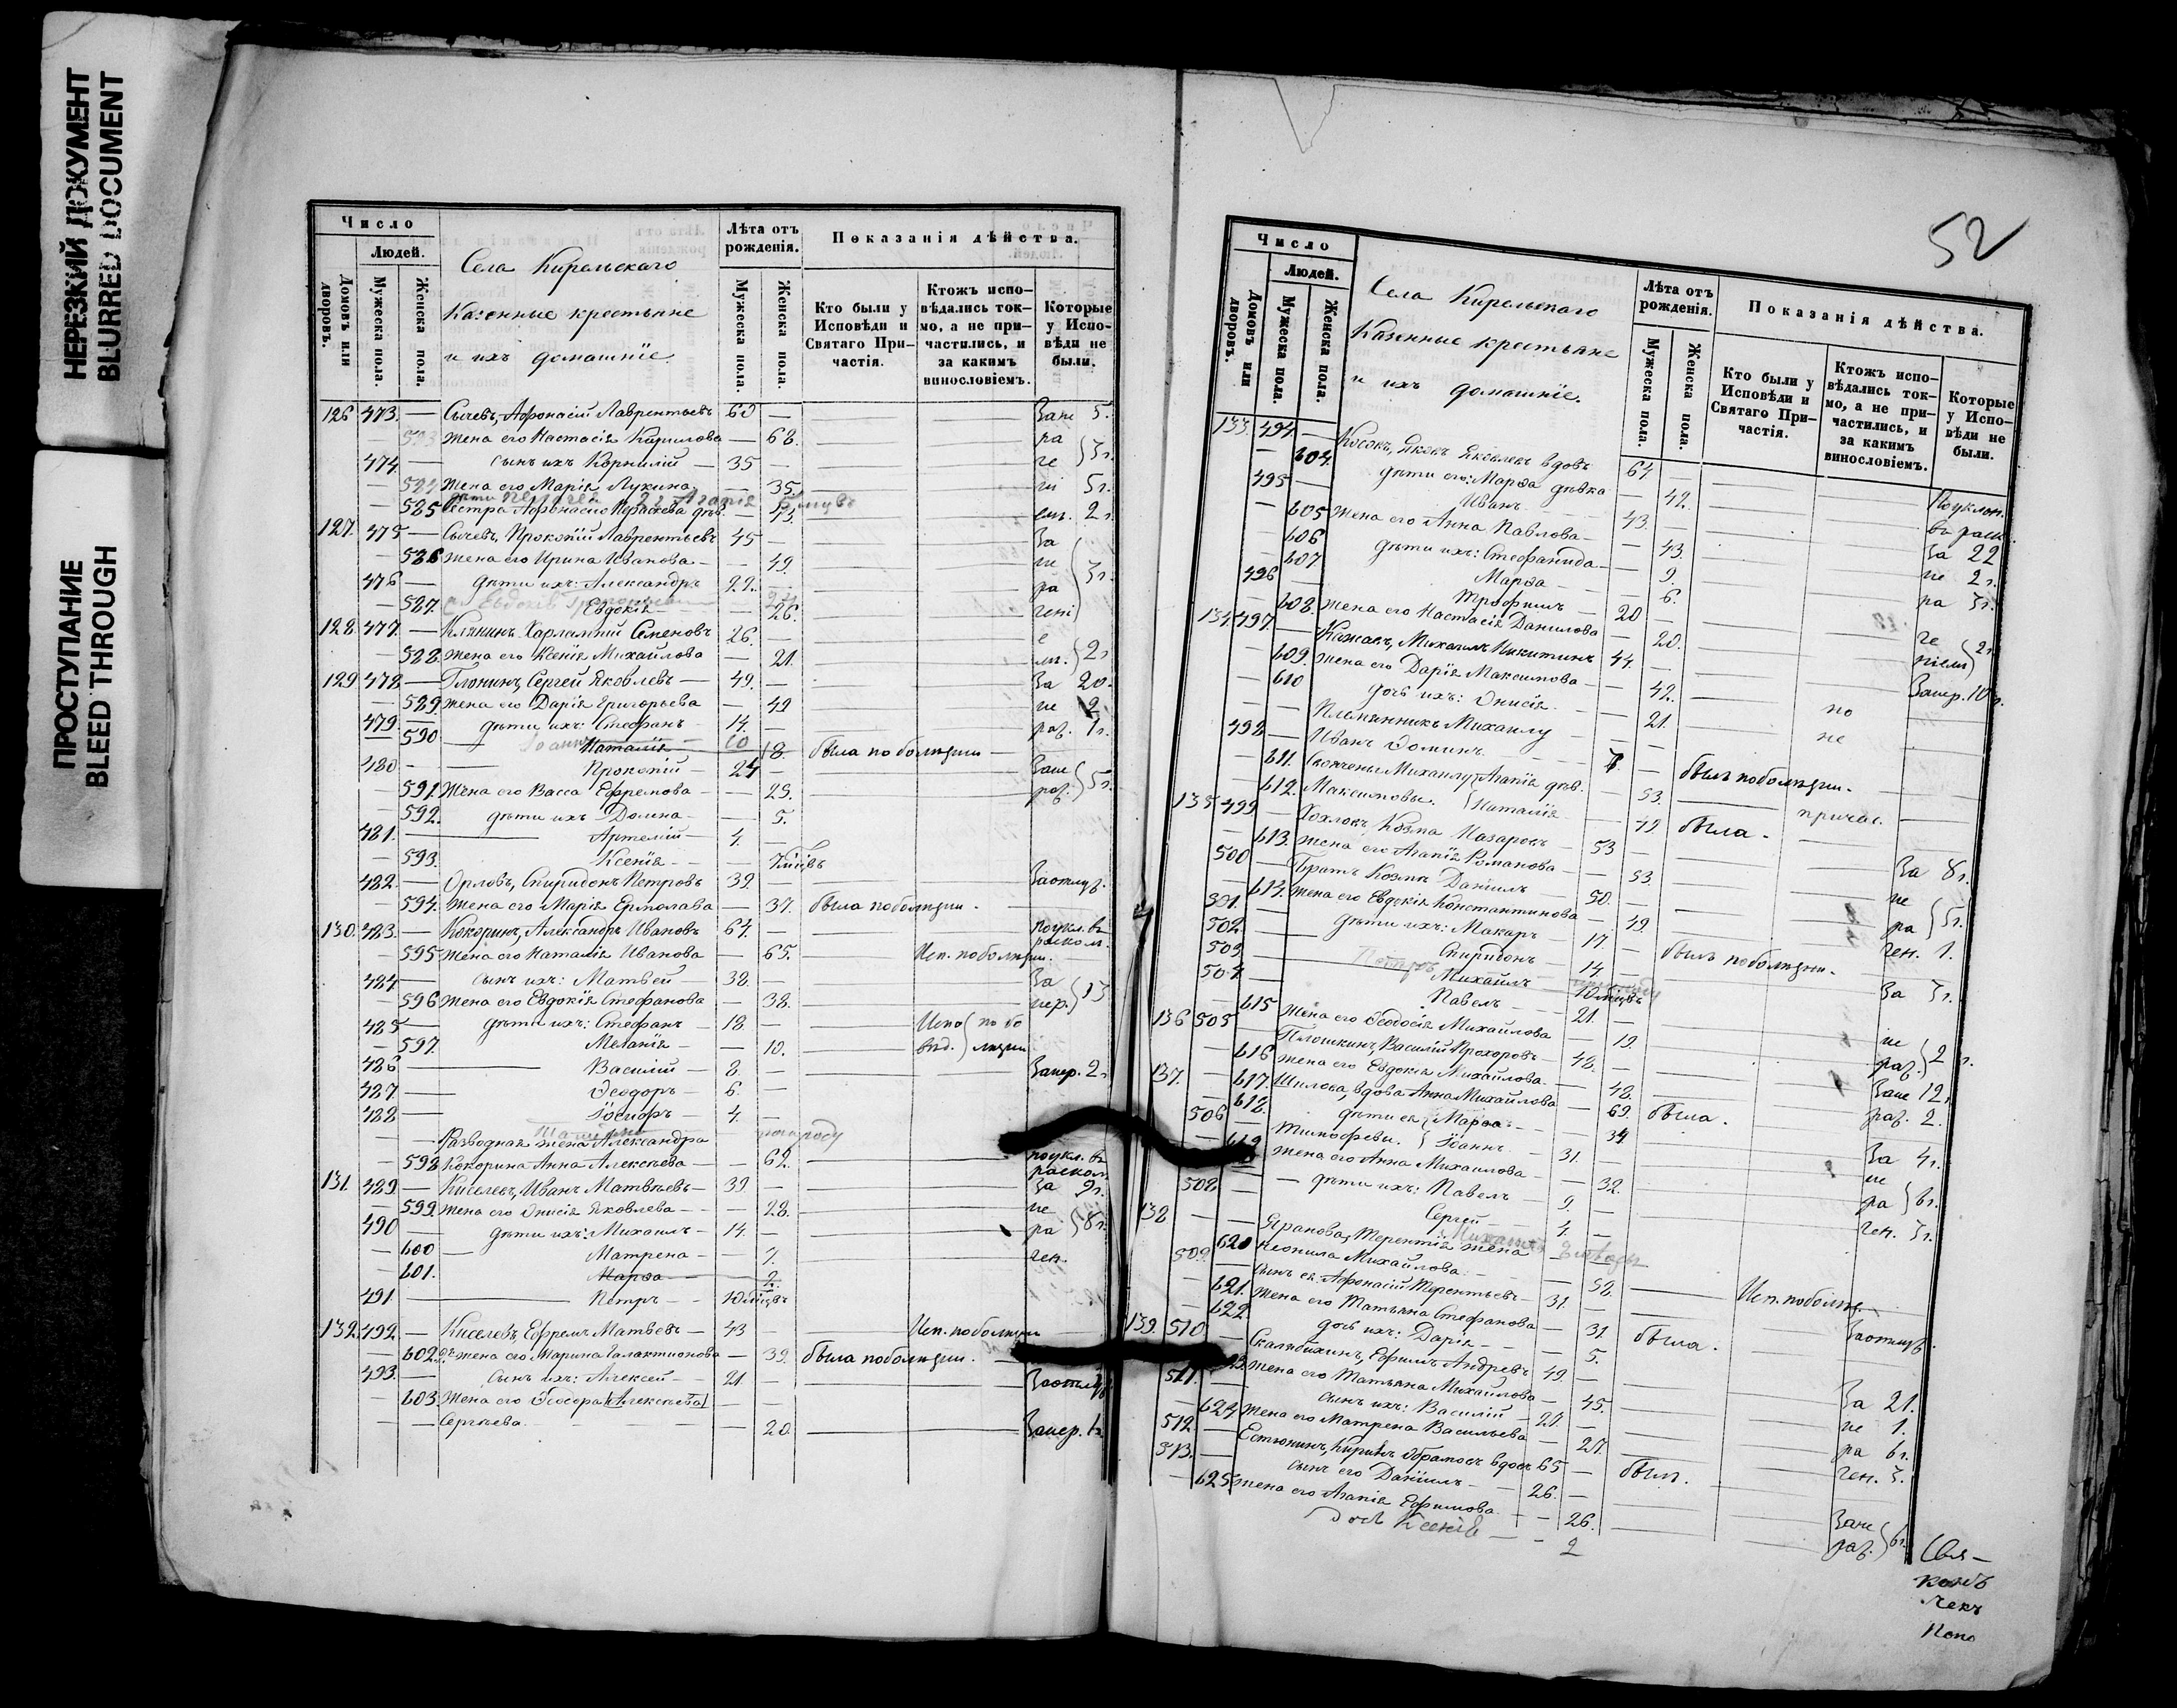 НЕРЕЗКИЙ ДОКУМЕНТ
BLURRED DOCUMENT
ПРОСТУПАНИЕ
BLEED THROUGH
Число
Людей.
Домовъ или дворовъ.
Мужеска пола.
Женска пола.
Села Кирельскаго
Казенные крестьяне
и ихъ домашніе.
Лѣта отъ рожденія.
Мужеска пола.
Женска пола.
Показанія дѣйства.
Кто были у Исповѣди и Святаго Причастія.
Ктожъ исповѣдались токмо, а не причастились, и за какимъ винословіемъ.
Которые у Исповѣди не были.
126 473. — Сычевъ, Афонасій Лаврентьевъ 60 — Зане 5.
— 583 жена его Настасія Кирилова — 68. ра
474. — сынъ ихъ Корнилій — 35 — че } 3 г.
— 584 Жена его Марія Лукина — 35. ні 5 г.
— 585 Сестра Афонасію Параскева дѣв. — 43. ем. 2 г.
127. 475 — Сычевъ, Прокопій Лаврентьевъ 45 — За
— 586 жена его Ирина Иванова — — 49. не } 3 г.
476 — дѣти ихъ: Александръ 22. — ра
— 587. Евдокія — 26. чені
128. 477. — Клянинъ Харлампій Семеновъ 26 — е
— 588. жена его Ксенія Михайлова — 21. мъ. } 2 г
129 478 — Глонинъ, Сергей Яковлевъ — 49. — За 20.
— 589. жена его Дарія Григорьева — 49 не 2
479. — дѣти ихъ: Стефанъ 14. — раз. 1 г.
— 590 Наталія 18. была по болѣзни
480 — Прокопій — 24 — Зане
— 591. Жена его Васса Ефремова — — 23. раз. } 5 г.
— 592. дѣти ихъ Домна — — 5.
481. — Артемій 4. —
— 593. Ксенія — — 7 міцвъ
482. — Орловъ, Спиридонъ Петровъ 39. — Заотлуч.
— 594. жена его Марія Ермолава — 37. была по болѣзни.
130. 483. — Кокоринъ, Александръ Ивановъ 64. — поукл. въ раскол.
— 595 жена его Наталія Иванова — 65. Исп. по болѣзни.
484 — сынъ ихъ: Матвей — 38. — За
— 596 жена его Евдокія Стефанова — 38. нер. } 13
485 — дѣти ихъ: Стефанъ — 18. — Испо } по бо
— 597. Меланія — — 10. вѣд. } лѣзни
486 — Василій — 8. — Занер. 2 г
487 — Ѳеодоръ — 6.
488 — Іосифъ — 4. —
— — Разводная жена Александра
— 598 Кокорина Анна Алексѣева — — 62. поукл. въ раскол
131. 489 — Киселевъ, Иванъ Матвѣевъ — 39. — За 9 г.
— 599. жена его Ѳнисія Яковлева — — 28. не
490 — дѣти ихъ: Михаилъ — 14. — ра } 8 г.
— 600 — Матрена — — 7. чен.
— 601. Марѳа — 2.
491 — Петръ — — 10 міцвъ
132. 492. — Киселевъ, Ефремъ Матвѣевъ — 43 — Исп. по болѣзни
— 602. жена его Марина Галактионова — 39. была по болѣзни.
493. — сынъ ихъ: Алексей — 21 — Заотлуч
— 603. Жена его Ѳеодора (Алексѣева) —
— — Сергѣева. — 20. Занер. 1 г.
52
Число
Людей.
Домовъ или дворовъ.
Мужеска пола.
Женска пола.
Села Кирельскаго
Казенные крестьяне
и ихъ домашніе.
Лѣта отъ рожденія.
Мужеска пола.
Женска пола.
Показанія дѣйства.
Кто были у Исповѣди и Святаго Причастія.
Ктожъ исповѣдались токмо, а не причастились, и за какимъ винословіемъ.
Которые у Исповѣди не были.
133. 494. — Косокъ, Яковъ Яковлевъ вдовъ 64 — Поуклон.
— 604. дѣти его: Марѳа дѣвка — 42. въ раск.
495 — Иванъ 43. — За 22
— 605 жена его Анна Павлова — — 43. не 2 г.
— 606 дѣти ихъ: Стефанида — — 9. ра 3 г.
— 607 Марѳа — — 6.
496 — Трофимъ — 20 — че
— 608. жена его Настасія Данилова — 20. ніемъ } 2 г
134. 497. — Кажаевъ, Михаилъ Никитинъ 44. — Занер. 10 г.
— 609. жена его Дарія Максимова — — 42. по
— 610 дочь ихъ: Ѳнисія. — — 21. не
— — Племянникъ Михаилу
498 — Иванъ Ѳоминъ. 7. — былъ по болѣзни.
— 611. Свояченыи Михаилу } Агапія дѣв. — 53. причас.
— 612. Максимовы. } Наталія — 49. была.
135 499 — Хохловъ Козма Назаровъ — 53 — За 8 г.
— 613. жена его Агапія Романова — — 53. не
500 — Братъ Козмы Даніилъ — 50. — ра } 5 г.
— 614. жена его Евдокія Константинова — 49. чен. 1.
501. — дѣти ихъ: Макаръ — 17 — былъ по болѣзни.
502 — Спиридонъ — 14 — За 3 г.
503 — Михаилъ 10 міцвъ
504 — Павелъ — 21. — не
— 615 жена его Ѳеодосія Михайлова — 19. раз. } 2 г.
136 505 — Плошкинъ, Василій Прохоровъ — 48. — Зане 12 г.
— 616 жена его Евдокія Михайлова — — 48. раз. 2.
137. — 617. Шилова, вдова Анна Михайлова — 69. была.
— 618. дѣти ея } Марѳа — — 34. За 4 г.
506 — Тимофеевы. } Іоаннъ — 31. — не
— 619 жена его Анна Михайлова — — 32. ра } 6 г.
— дѣти ихъ: Павелъ — 9. — чен. 3 г.
508 — Сергей — 4. —
138 — — Яранова, Терентія жена
— 620 Неонила Михайлова — — 52. Исп. по болѣз.
509 — сынъ ея: Афонасій Терентьевъ — 31. — Заотлуч.
— 621. жена его Татьяна Стефанова — 31 была.
— 622. дочь ихъ: Дарія — — 5.
139. 510 — Скалябихинъ, Ефимъ Андревъ 49. — За 21.
— 623. жена его Татьяна Михайлова — 45. не 1.
511. — сынъ ихъ: Василій — 27. — ра 6 г.
— 624 жена его Матрена Васильева — 27. чен. 3.
512. — Естюнинъ, Кирилъ Абрамовъ вдовъ 65 — былъ.
513. — сынъ его Даніилъ — 26. — Зане
— 625 жена его Агапія Ефимова — — 26. раз. } 6 г.
дочь Ксенія — — 2